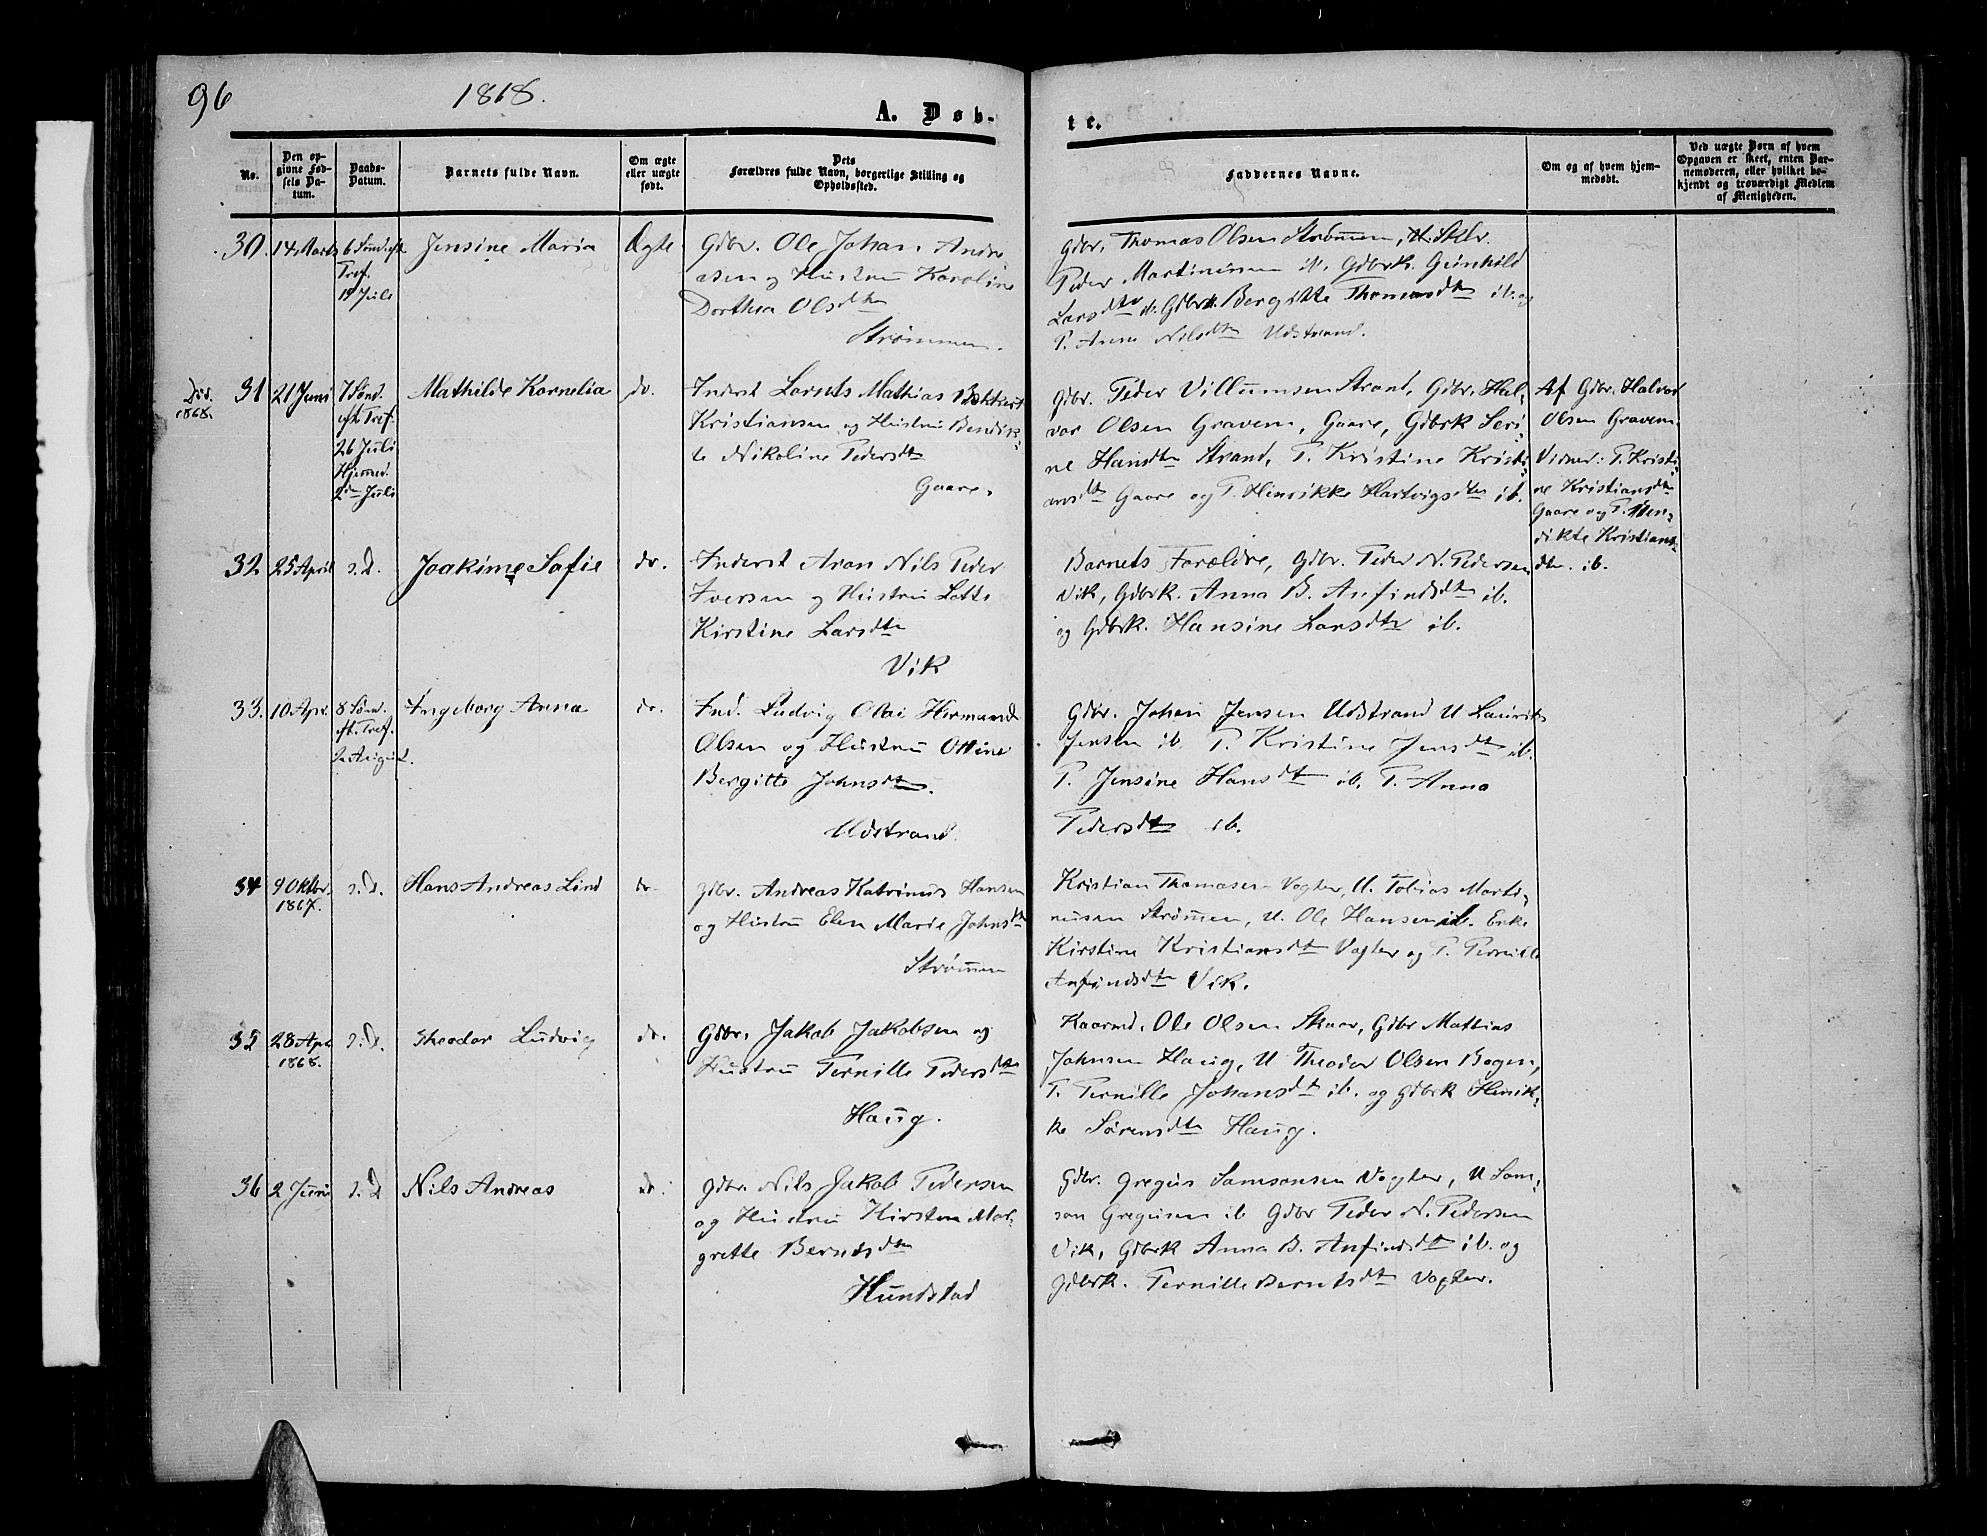 96
1868.
A. Døb-
te.
No.
Den op-
givne Fød-
sels Da-
tum.
Daabs-
Datum.
Barnets fulde Navn.
Om ægte
eller uægte
født.
Dets
Forældres fulde Navn, borgerlige Stilling og
Opholdssted.
Faddernes Navne.
Om og af hvem hjem-
medøbt.
Ved uægte Børn af hvem
Opgaven er skeet, enten Bar-
nemoderen, eller hvilket be-
kjendt og troværdigt Medlem
af Menigheden.
30.
14 Marts
6 Sønd. eft.
Tref.
19 Juli
Jensine Maria
Ægte
Gdbr. Ole Johan Andre-
asen og Hustru Karoline
Dorthea Olsdtr
Strømmen.
Gdbr. Thomas Olsen Strømmen, U. Selv.
Peder Martinussen ib. Gdbrk. Gunhild
Larsdtr ib. Gdbrk. Bergitte Thomasdtr ib. og
P. Anne Nilsdtr Udstrand.
Død.
1868.
31
21 Juni
7 Sønd.
eft. Tref.
26 Juli
Hjemmed.
2den Juli
Mathilde Kornelia
do.
Inderst Lornts Mathias
Kristiansen og Hustru Bendik-
te Nikoline Pedersdtr
Gaare.
Gdbr. Peder Villumsen Strand, Gdbr. Hal-
vor Olsen Gravem, Gaare, Gdbrk Seri-
ne Hansdtr Strand, P. Kristine Kristi-
ansdtr Gaare og P. Hinrikke Hartvigsdtr ib.
Af Gdbr. Halvor
Olsen Gravem.
Vidner: P. Kristi-
ne Kristiansdtr
Gaare og P. Ben-
dikte Kristians-
dtr. ib.
32
25 April
s.D.
Joakime Sofie
do.
Inderst Aron Nils Peder
Iversen og Hustru Lotte
Kirstine Larsdtr
Vik
Barnets Forældre, Gdbr. Peder N. Pedersen
Vik, Gdbrk. Anna B. Anfindsdtr ib.
og Gdbrk. Hansine Larsdtr ib.
33.
10 Apr.
8 Sønd.
eft. Tref.
2 August.
Ingeborg Anna
do.
Ind. Ludvig Olai Hermand
Olsen og Hustru Ottine
Bergitte Johnsdtr.
Udstrand.
Gdbr. Johan Jensen Udstrand U Laurits
Jensen ib. P. Kristine Jensdtr ib.
P. Jensine Hansdtr ib. P. Anna
Pedersdtr ib.
34
9 Oktbr.
1867.
s.D.
Hans Andreas Lind
do.
Gdbr. Andreas Katrinus Hansen
og Hustru Elen Marie Johnsdtr
Strømmen
Kristian Thomasen Vogter, U. Tobias Marti-
nusen Strømmen, U. Ole Hansen ib. Enke
Kirstine Kristiansdtr Vogter og P. Pernille
Anfindsdtr Vik.
35
28 Apr.
1868.
s.D.
Theodor Ludvig
do.
Gdbr. Jakob Jakobsen og
Hustru Pernille Pedersdtr
Haug.
Kaarmd. Ole Olsen Skaar, Gdbr Mathias
Johnsen Haug, U Theodor Olsen Bogen,
P. Pernille Johansdtr ib. og Gdbrk Henrik-
ke Sørensdtr Haug.
36
2 Juni
s.D
Nils Andreas
do.
Gdbr. Nils Jakob Pedersen
og Hustru Kirsten Mar-
grette Berntsdtr
Hundstad
Gdbr. Gregus Samsonsen Vogter, U Sam-
son Gregusen ib Gdbr Peder N. Pedersen
Vik, Gdbrk Anna B. Anfindsdtr ib. og
Gdbrk. Pernille Berntsdtr Vogter.